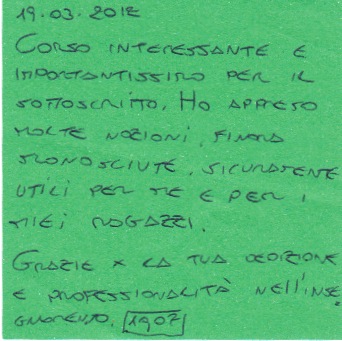 19.03.2012
CORSO INTERESSANTE E
IMPORTANTISSIMO PER IL
SOTTOSCRITTO. HO APPRESO
MOLTE NOZIONI, FINORA
SCONOSCIUTE, SICURAMENTE
UTILI PER ME E PER I
MIEI RAGAZZI.
GRAZIE X LA TUA DEDIZIONE
E PROFESSIONALITÀ NELL'INSE
GNAMENTO. 1907